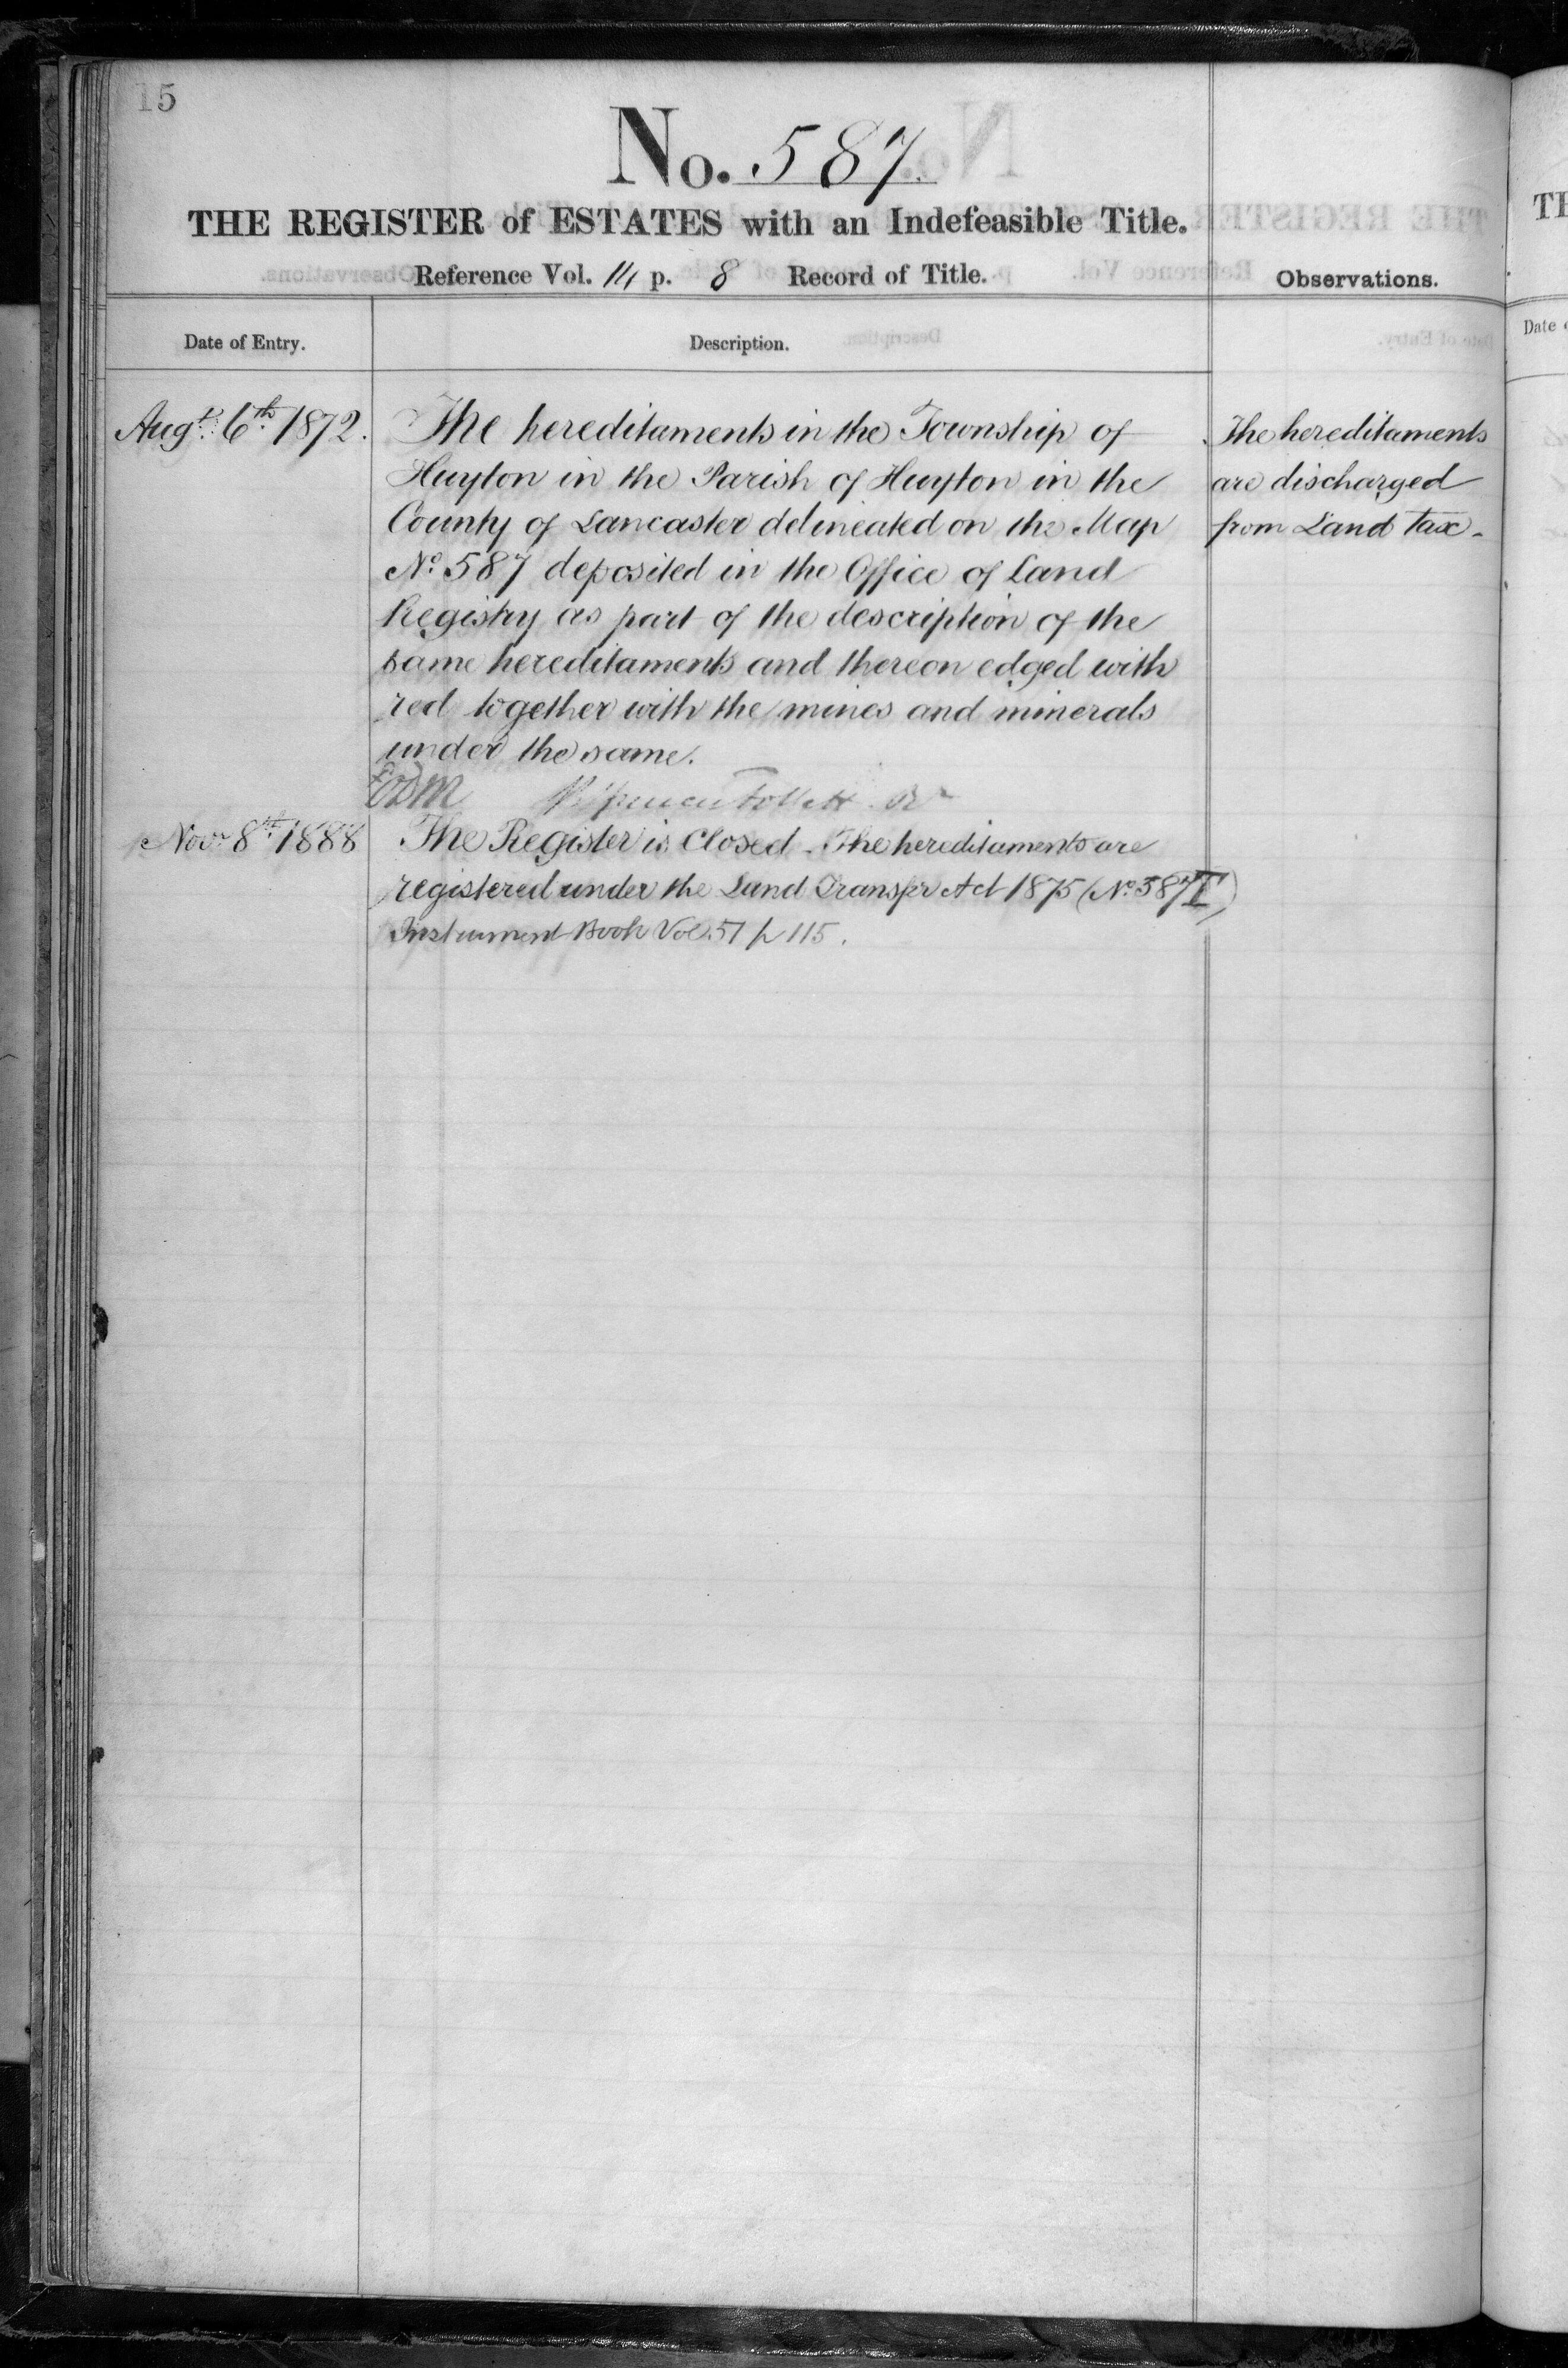 15
No. 587.
THE REGISTER of ESTATES with an Indefeasible Title.
Reference Vol. 14 p. 8 Record of Title.
Observations.
Date of Entry.
Description.
Augt. 6th 1872.
The hereditaments in the Township of
Huyton in the Parish of Huyton in the
County of Lancaster delineated on the Map
No. 587 deposited in the Office of Land
Registry as part of the description of the
same hereditaments and thereon edged with
red together with the mines and minerals
under the same.
The hereditaments
are discharged
from Land Tax.
Follett
Novr. 8th 1888
The Register is Closed. The hereditaments are
registered under the Land Transfer Act 1875 (No. 587 I)
Instrument Book Vol. 51 p 115.
TH
Date